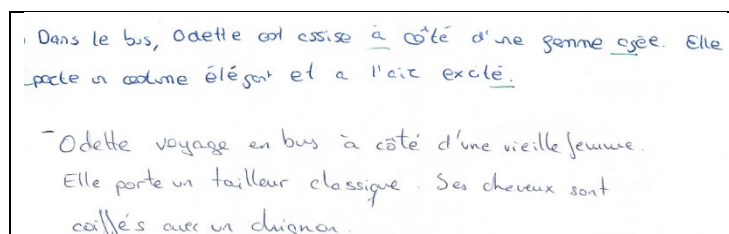 Dans le bus, Odette est assise à côté d'une femme agée. Elle
porte un costume élégant et a l'air excité.
- Odette voyage en bus à côté d'une vieille femme.
Elle porte un tailleur classique. Ses cheveux sont
coiffés avec un chignon.